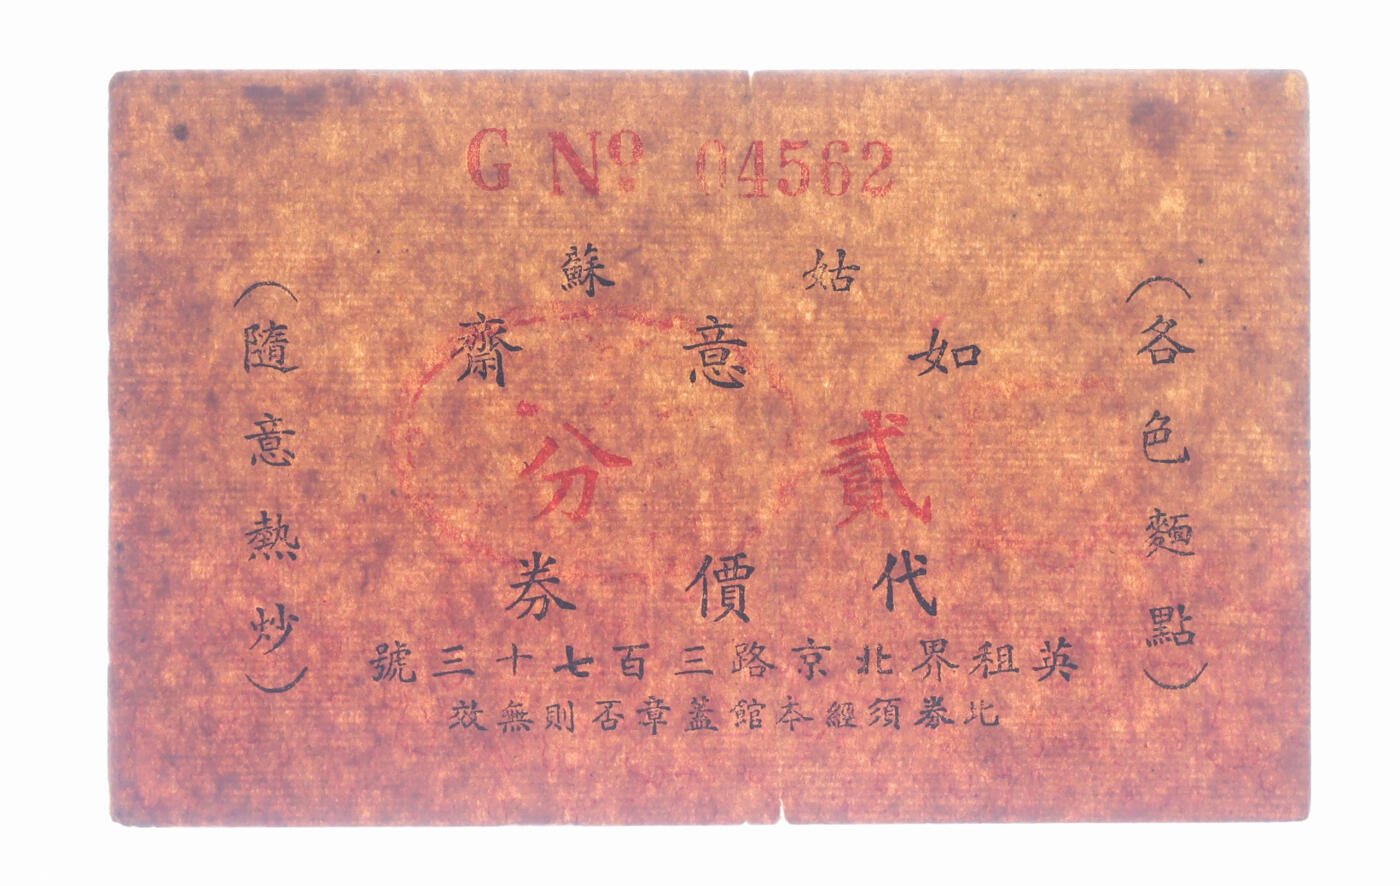 G No 04562
姑蘇
如意齋
貳分
代價券
英租界北京路三百七十三號
此券須經本館蓋章否則無效
（各色麵點）
（隨意熱炒）